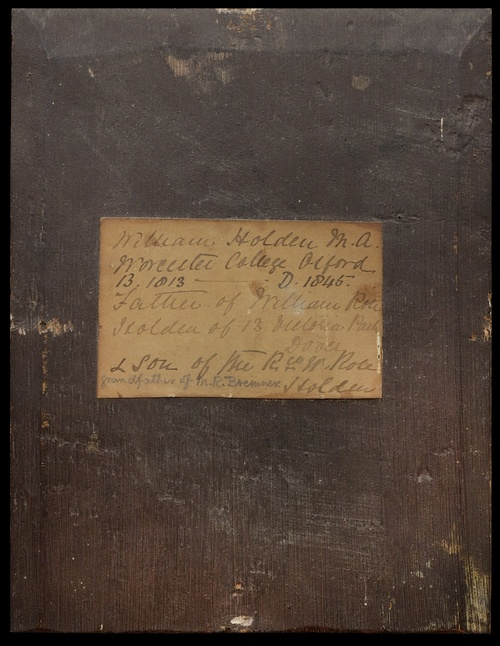 William Holden M.A.
Worcester College Oxford
B. 1813 — : D. 1845.
Father of William Rose
Holden of 13 Victoria Park
Dover
& Son of the Revd W. Rose
grandfather of M.R. Bremner. Holden